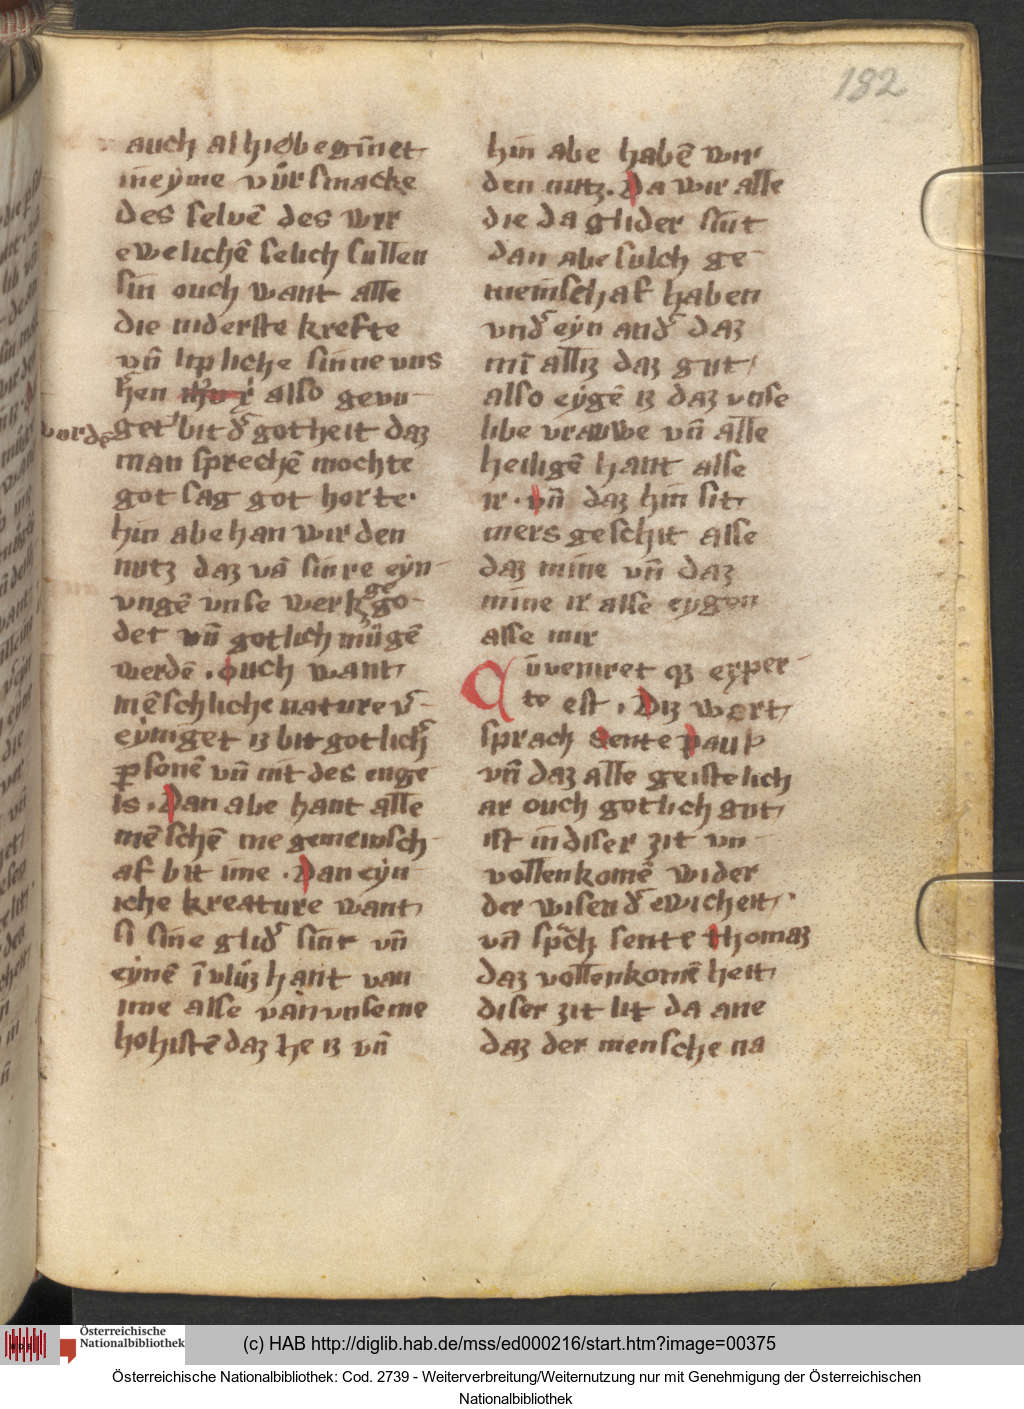 182
auch al hie begīnet
in eẏme vůrsmacke
des selvē des wir
ewelichē selich sullen
sin ouch want alle
die niderste krefte
vn̄ liplicheſinne vns
h̓en also gevu
get bit d̓ gotheit daz
vordē
man sprechē mochte
got sag got horte.
hin abe han wir den
nutz daz vā sinre eẏn
vngē vnse werk ge go
det vn̄ gotlich mügē
werdē . ouch want
mēschliche nature v̓
eẏniget iz bit gotlich̓
ꝑsonē vn̄ nit des enge
ls . Dan abe hant alle
mēschē me gemeinsch
af bit ime . Dan eẏn
iche kreature want
si sine glid̓ sint vn̄
eẏnē īvlůz hant van
ime alse van vnseme
hohistē daz he iz vn̄
hin abe habē wir
den nutz. Da wir alle
die da glider sint
dan abe sulch ge
meinschaf haben
vnd̓ eẏn and̓ daz
mī alliz daz gut
also eẏgē iz daz vnse
libe vrauwe vn̄ alle
heiligē hant alse
ir . vn̄ daz hin sit
mers geschit alse
daz mine vn̄ daz
mine ir alse eygen
alse mir
Cū venerit qz exper
te est . Diz wort
sprach sente paul
vn̄ daz alle geistelich
ar ouch gotlich gut
ist in diser zit vn
vollenkomē wider
der wisen d̓ ewicheit.
vn̄ sp̄ch sente thomaz
daz vollenkomē heit
diser zit lit da ane
daz der mensche na
Österreichische
Nationalbibliothek
(c) HAB http://diglib.hab.de/mss/ed000216/start.htm?image=00375
Österreichische Nationalbibliothek: Cod. 2739 - Weiterverbreitung/Weiternutzung nur mit Genehmigung der Österreichischen
Nationalbibliothek